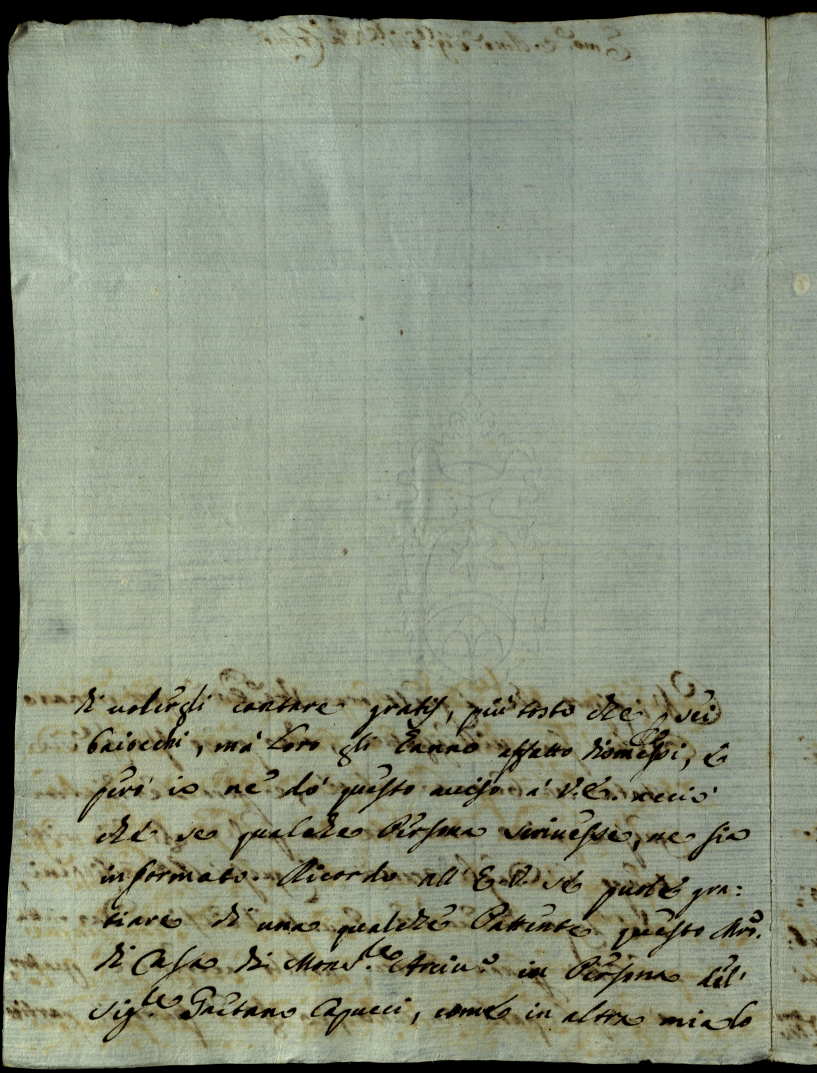 di volergli cantare gratis, più tosto che p sei
baiocchi, ma loro gli hanno affatto dismessi, e
però io nè dò questo aviso à V.E. acciò
che se qualche Persona scrivesse, ne sia
informato. Ricordo all' E.V. se puole gra:
tiare di una qualche Pattente questo Mro.
di Casa di Monsre. Arcivo. in Persona del'
Sigre. Gaetano Capucci, come in altra mia lo